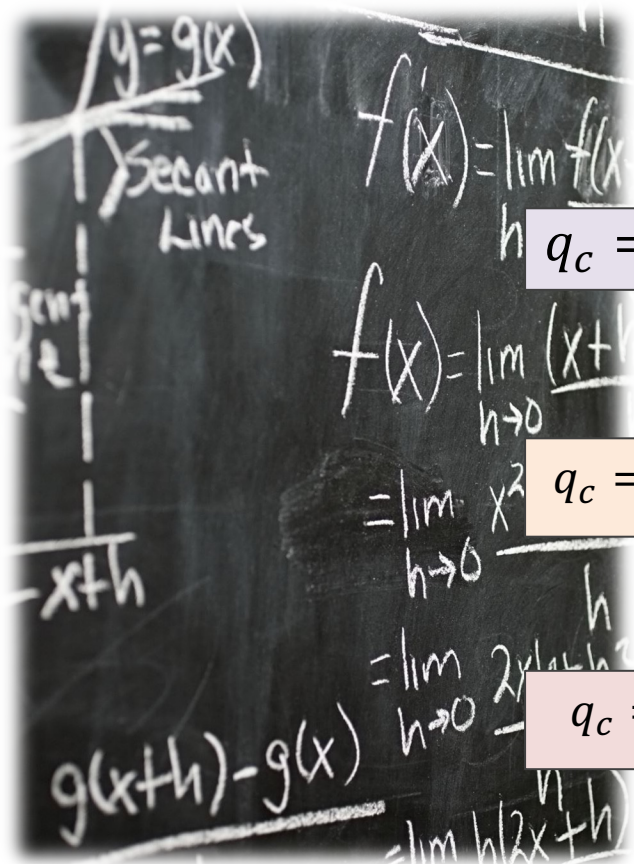 y = g(x)
Secant
Lines
x+h
g(x+h)-g(x)
f'(x) = lim f(x
h
q_c =
f(x) = lim (x+h
h→0
= lim x²
h→0
q_c =
h
= lim
h→0
q_c =
h
= lim h(2x+h)